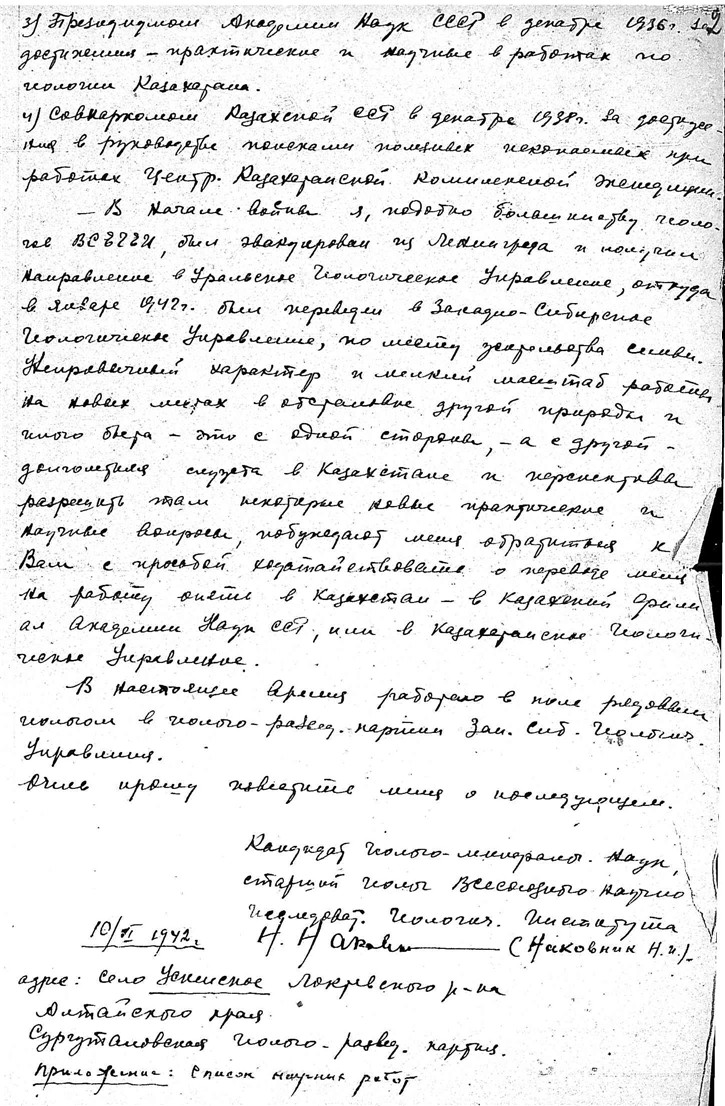 2
3) Президиумом Академии Наук СССР в декабре 1936г. за
достижения – практические и научные в работах по
геологии Казахстана.
4) Совнаркомом Казахской ССР в декабре 1938г. за достиже-
ния в руководстве поисками полезных ископаемых при
работах Центр. Казахстанской комплексной экспедиции.
– В начале войны я, подобно большинству геоло-
гов ВСЕГЕИ, был эвакуирован из Ленинграда и получил
направление в Уральское Геологическое Управление, откуда
в январе 1942г. был переведен в Западно-Сибирское
Геологическое Управление, по месту жительства семьи.
Непривычный характер и мелкий масштаб работы
на новых местах в обстановке другой природы и
иного быта – это с одной стороны, – а с другой –
долголетняя служба в Казахстане и перспективы
разрешить там некоторые новые практические и
научные вопросы, побуждают меня обратиться к
Вам с просьбой ходатайствовать о переводе меня
на работу опять в Казахстан – в Казахский Фили-
ал Академии Наук ССР, или в Казахстанское Геологи-
ческое Управление.
В настоящее время работаю в поле рядовым
геологом в геолого-развед. партии Зап. Сиб. Геологич.
Управления.
Очень прошу известить меня о последующем.
Кандидат геолого-минералог. наук,
старший геолог Всесоюзного Научно
Исследоват. Геологич. Института
10/II 1942. Н. Наковник (Наковник Н.И.).
адрес: село Успенское Локтевского р-на
Алтайского края
геолого-развед. партия.
Приложение: Список научных работ